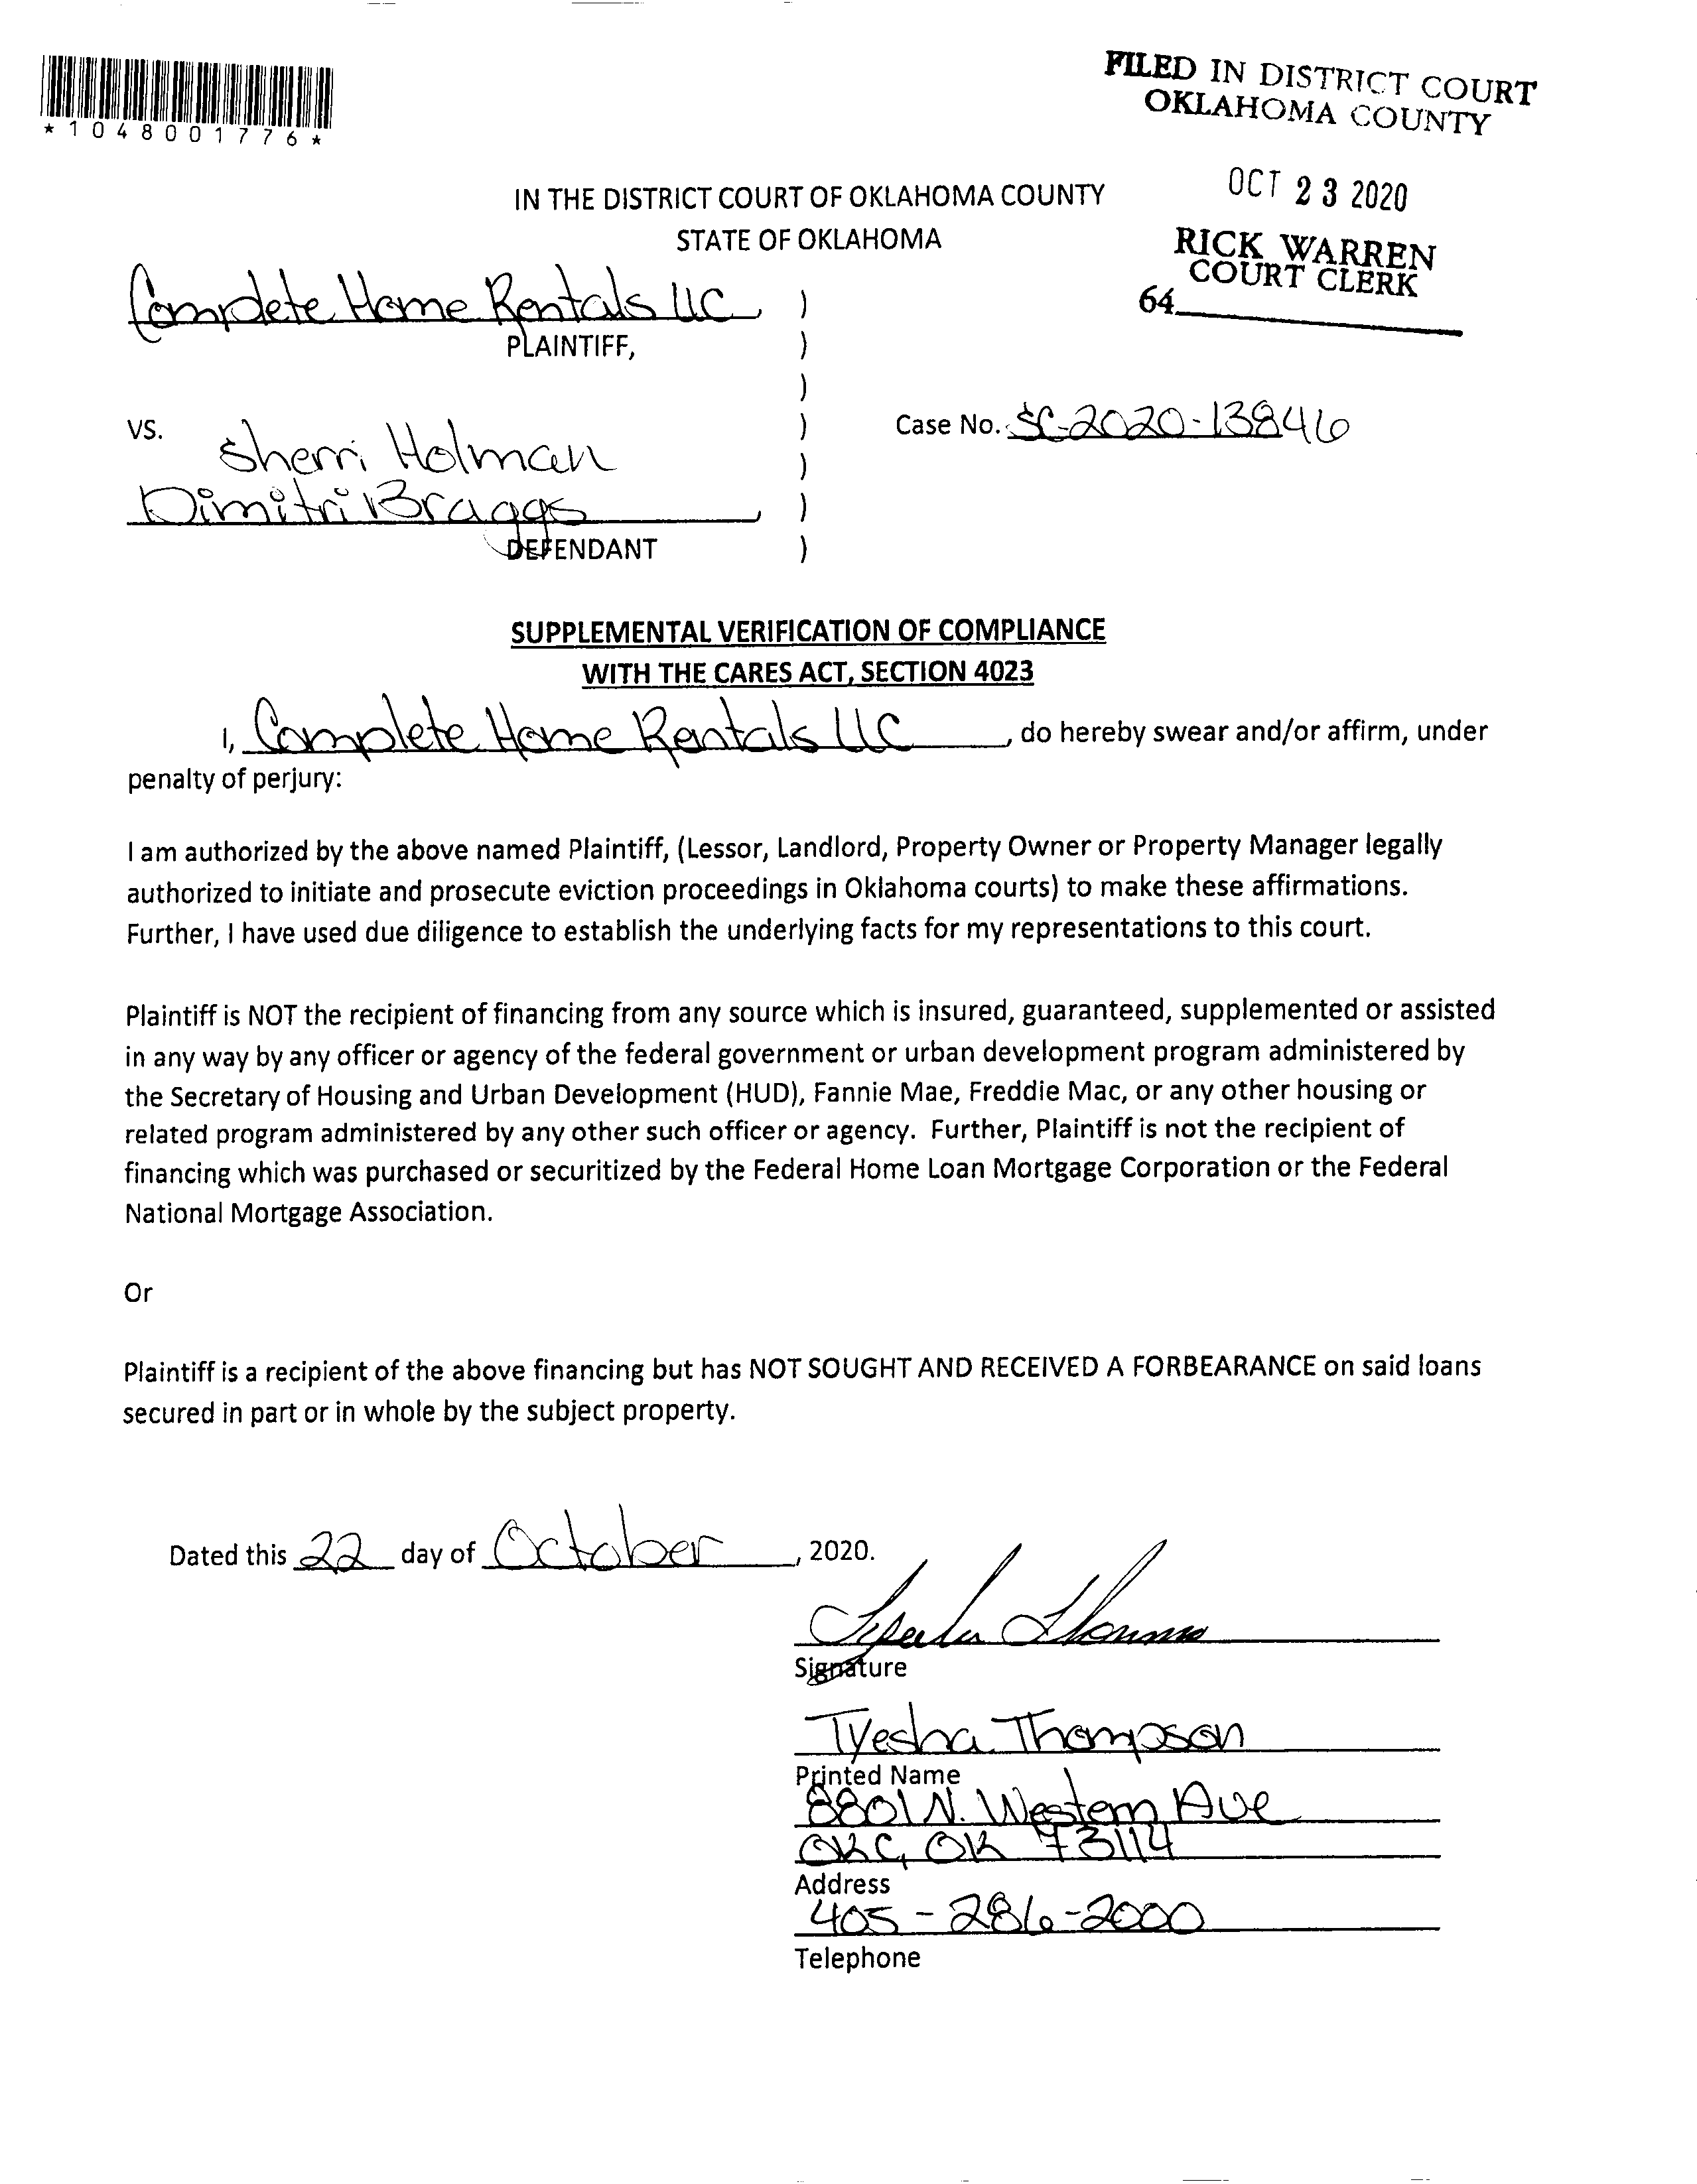 FILED IN DISTRICT COURT
OKLAHOMA COUNTY
*1048001776*
OCT 23 2020
IN THE DISTRICT COURT OF OKLAHOMA COUNTY
STATE OF OKLAHOMA
RICK WARREN
COURT CLERK
64
Complete Home Rentals LLC, )
PLAINTIFF, )
)
VS. )
Case No. SC-2020-13846
Sherri Holman )
Dimitri Braggs, )
DEFENDANT )
SUPPLEMENTAL VERIFICATION OF COMPLIANCE
WITH THE CARES ACT, SECTION 4023
I, Complete Home Rentals LLC, do hereby swear and/or affirm, under
penalty of perjury:
I am authorized by the above named Plaintiff, (Lessor, Landlord, Property Owner or Property Manager legally
authorized to initiate and prosecute eviction proceedings in Oklahoma courts) to make these affirmations.
Further, I have used due diligence to establish the underlying facts for my representations to this court.
Plaintiff is NOT the recipient of financing from any source which is insured, guaranteed, supplemented or assisted
in any way by any officer or agency of the federal government or urban development program administered by
the Secretary of Housing and Urban Development (HUD), Fannie Mae, Freddie Mac, or any other housing or
related program administered by any other such officer or agency. Further, Plaintiff is not the recipient of
financing which was purchased or securitized by the Federal Home Loan Mortgage Corporation or the Federal
National Mortgage Association.
Or
Plaintiff is a recipient of the above financing but has NOT SOUGHT AND RECEIVED A FORBEARANCE on said loans
secured in part or in whole by the subject property.
Dated this 22 day of October, 2020.
Signature
Tyesha Thompson
Printed Name
8801 N. Western Ave
OKC, OK 73114
Address
405-286-2000
Telephone